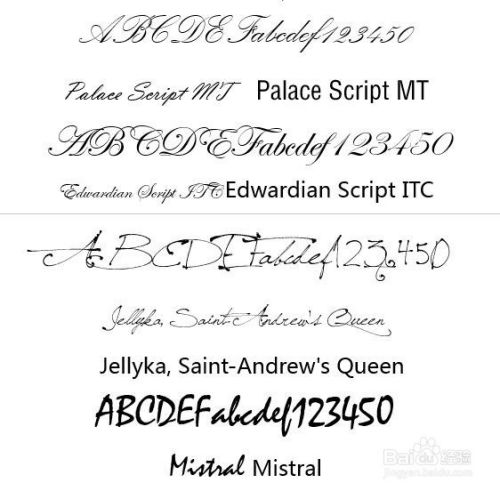 ABCDEFabcdef123450
Palace Script MT Palace Script MT
ABCDEFabcdef123450
Edwardian Script ITC Edwardian Script ITC
ABCDEFabcdef123,450
Jellyka, Saint-Andrew's Queen
Jellyka, Saint-Andrew's Queen
ABCDEFabcdef123450
Mistral Mistral
Baidu经验
jingyan.baidu.com